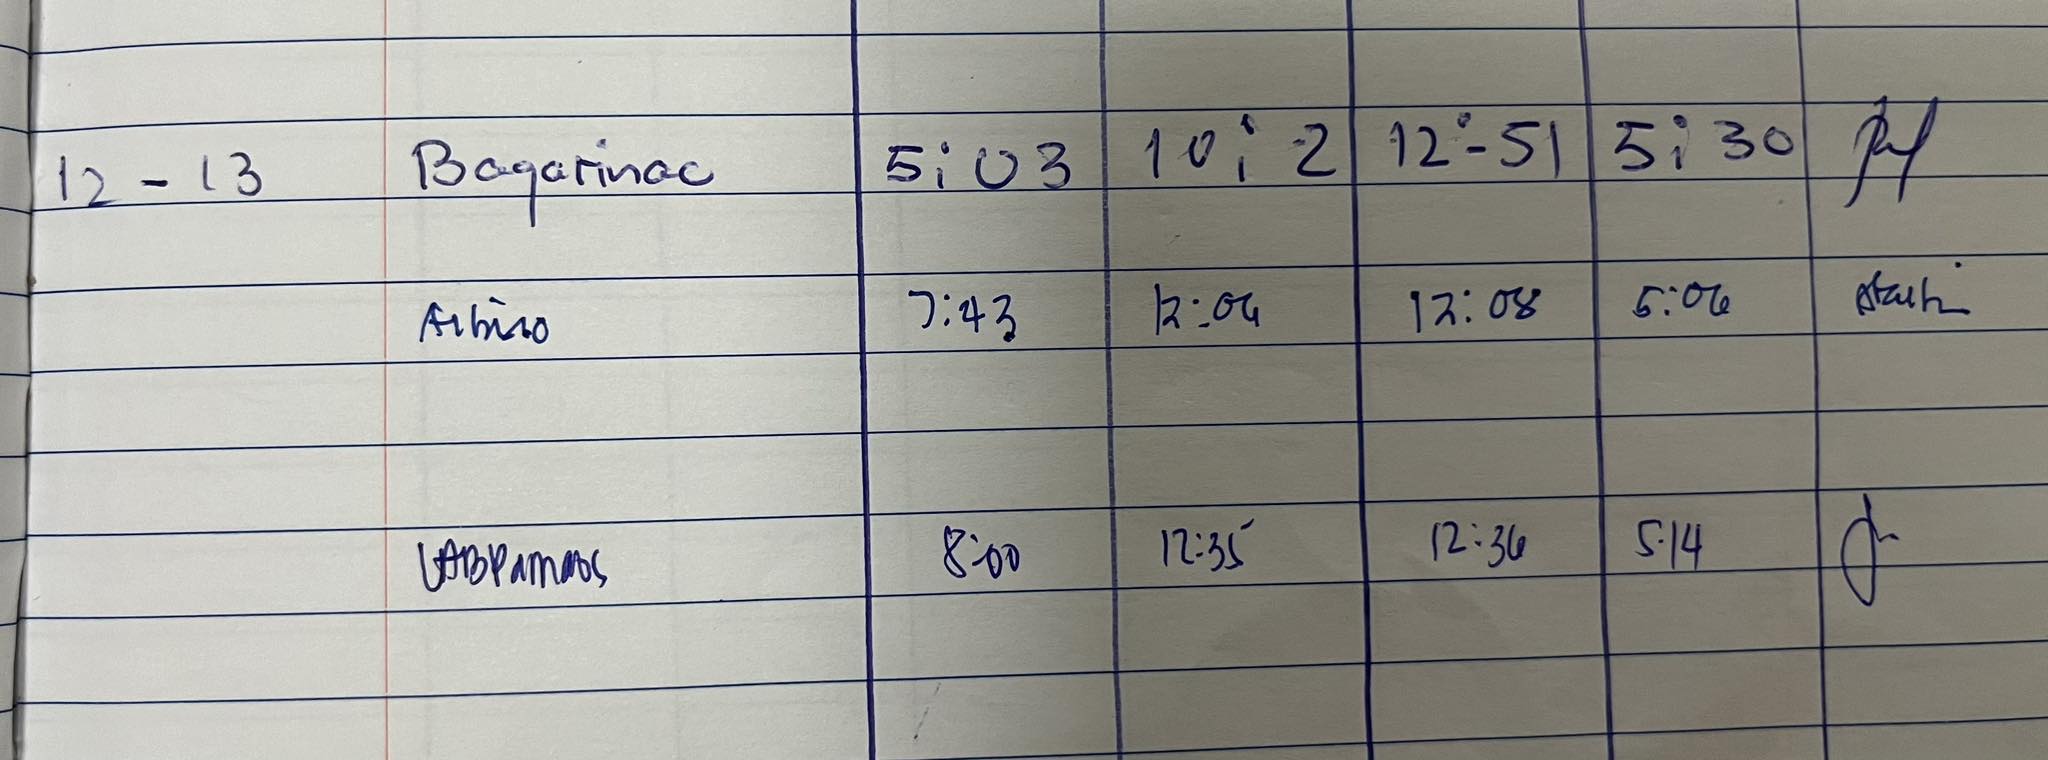 12 - 13 Bagarinao 5:03 10:2 12:51 5:30
Albino 7:43 12:06 12:08 5:06
8:00 12:35 12:36 5:14